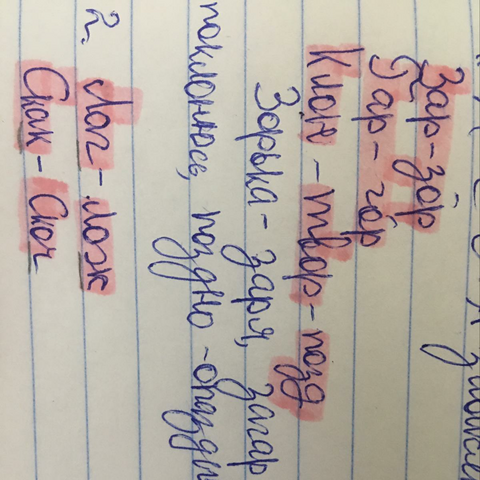 Зар-зор
Гар-гор
Клон - твор - позд
Зорька - заря, загар
поклонюсь, поздно -
2. Лог - лож
Скак - Скоч